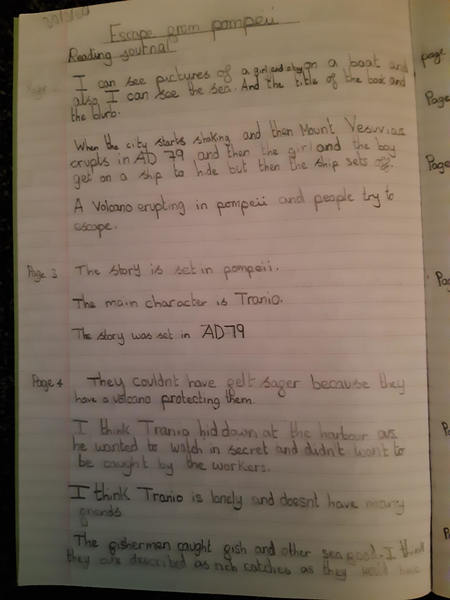 Escape from pompeii
Reading journal
I can see pictures of a girl and a boy on a boat and
also I can see the sea. And the title of the book and
the blurb.
When the city starts shaking and then Mount Vesuvias
erupts in AD 79 and then the girl and the boy
get on a ship to hide but then the ship sets off.
A Volcano erupting in pompeii and people try to
escape.
Page 3 The story is set in pompeii.
The main character is Tranio.
The story was set in AD79
Page 4 They couldnt have felt safer because they
have a volcano protecting them.
I think Tranio hid down at the harbour as
he wanted to watch in secret and didn't want to
be caught by the workers.
I think Tranio is lonely and doesnt have many
friends
The fishermen caught fish and other seafood. I think
they are described as rich catches as they would have
page
Page
Page